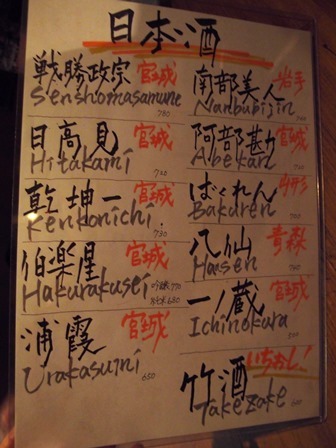 日本酒
戦勝政宗 宮城
Senshomasamune
780
日高見 宮城
Hitakami
720
乾坤一 宮城
Kenkonichi
730
伯楽星 宮城
Hakurakusei 吟醸 770
純米 680
浦霞 宮城
Urakasumi
650
南部美人 岩手
Nanbubijin
阿部勘 宮城
Abekan
ばくれん 山形
Bakuren
700
八仙 青森
Hassen
一ノ蔵 宮城
Ichinokura
500
竹酒 いちおし!
Takezake